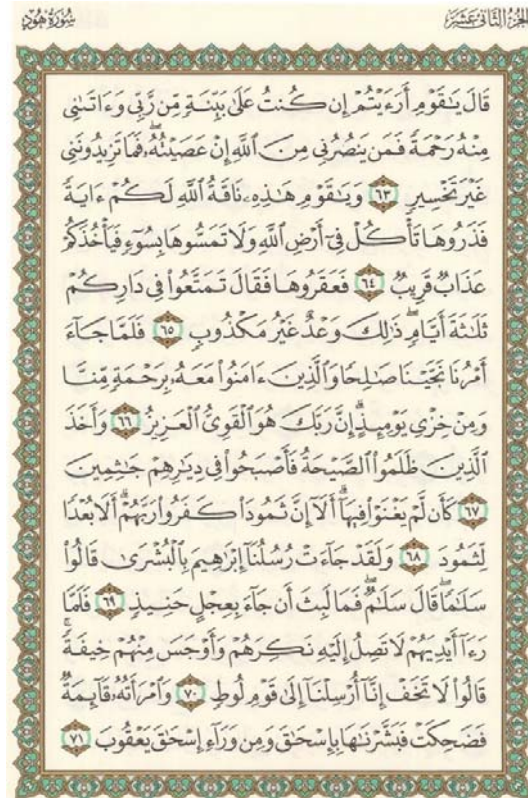 الجزء الثاني عشر
سورة هود
قَالَ يَـٰقَوْمِ أَرَءَيْتُمْ إِن كُنتُ عَلَىٰ بَيِّنَةٍ مِّن رَّبِّى وَءَاتَىٰنِى
مِنْهُ رَحْمَةً فَمَن يَنصُرُنِى مِنَ ٱللَّهِ إِنْ عَصَيْتُهُۥ ۖ فَمَا تَزِيدُونَنِى
غَيْرَ تَخْسِيرٍ ٦٣ وَيَـٰقَوْمِ هَـٰذِهِۦ نَاقَةُ ٱللَّهِ لَكُمْ ءَايَةً
فَذَرُوهَا تَأْكُلْ فِىٓ أَرْضِ ٱللَّهِ وَلَا تَمَسُّوهَا بِسُوٓءٍ فَيَأْخُذَكُمْ
عَذَابٌ قَرِيبٌ ٦٤ فَعَقَرُوهَا فَقَالَ تَمَتَّعُوا۟ فِى دَارِكُمْ
ثَلَـٰثَةَ أَيَّامٍ ۖ ذَٰلِكَ وَعْدٌ غَيْرُ مَكْذُوبٍ ٦٥ فَلَمَّا جَآءَ
أَمْرُنَا نَجَّيْنَا صَـٰلِحًا وَٱلَّذِينَ ءَامَنُوا۟ مَعَهُۥ بِرَحْمَةٍ مِّنَّا
وَمِنْ خِزْىِ يَوْمِئِذٍ ۗ إِنَّ رَبَّكَ هُوَ ٱلْقَوِىُّ ٱلْعَزِيزُ ٦٦ وَأَخَذَ
ٱلَّذِينَ ظَلَمُوا۟ ٱلصَّيْحَةُ فَأَصْبَحُوا۟ فِى دِيَـٰرِهِمْ جَـٰثِمِينَ
٦٧ كَأَن لَّمْ يَغْنَوْا۟ فِيهَآ ۗ أَلَآ إِنَّ ثَمُودَا۟ كَفَرُوا۟ رَبَّهُمْ ۗ أَلَا بُعْدًا
لِّثَمُودَ ٦٨ وَلَقَدْ جَآءَتْ رُسُلُنَآ إِبْرَٰهِيمَ بِٱلْبُشْرَىٰ قَالُوا۟
سَلَـٰمًا ۖ قَالَ سَلَـٰمٌ ۖ فَمَا لَبِثَ أَن جَآءَ بِعِجْلٍ حَنِيذٍ ٦٩ فَلَمَّا
رَءَآ أَيْدِيَهُمْ لَا تَصِلُ إِلَيْهِ نَكِرَهُمْ وَأَوْجَسَ مِنْهُمْ خِيفَةً ۚ
قَالُوا۟ لَا تَخَفْ إِنَّآ أُرْسِلْنَآ إِلَىٰ قَوْمِ لُوطٍ ٧٠ وَٱمْرَأَتُهُۥ قَآئِمَةٌ
فَضَحِكَتْ فَبَشَّرْنَـٰهَا بِإِسْحَـٰقَ وَمِن وَرَآءِ إِسْحَـٰقَ يَعْقُوبَ ٧١